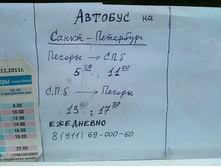 АВТОБУС на
Санкт-Петербург
Печоры → С.П.б
5³⁰ : 11⁰⁰
С.П.б → Печоры
13⁰⁰ : 17³⁰
ЕЖЕДНЕВНО
8 (911) 69-000-60
12.2011г.
9-00
22-00